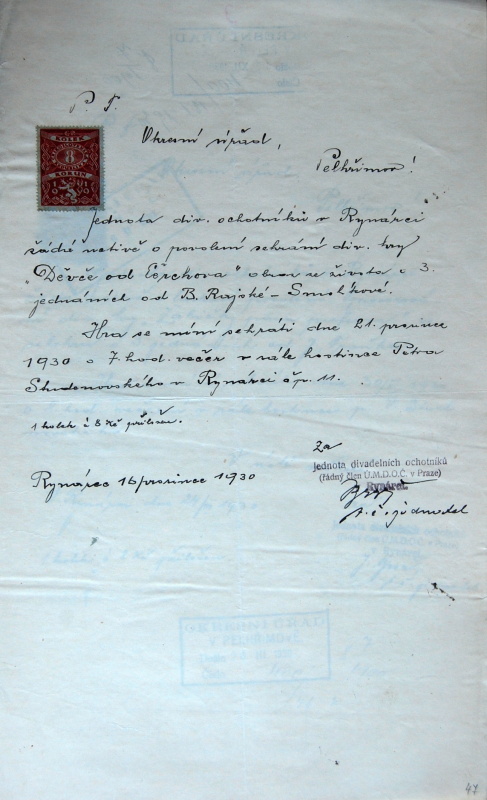 P. T.
KOLEK
8
KORUN
1930
Okresní úřad,
Pelhřimov!
Jednota div. ochotníků v Rynárci
žádá uctivě o povolení sehrání div. hry
"Děvče od Čerchova" obraz ze života o 3.
jednáních od B. Rajské-Smolíkové.
Hra se míní sehráti dne 21. prosince
1930 o 7. hod. večer v sále hostince Petra
Studenovského v Rynárci čp. 11.
1 kolek à 8 Kč přiložen.
Za
Jednota divadelních ochotníků
(řádný člen Ú.M.D.O.Č. v Praze)
Rynárec
Rynárec 16 prosince 1930
t. č. jednatel
OKRESNÍ ÚŘAD
V PELHŘIMOVĚ
47